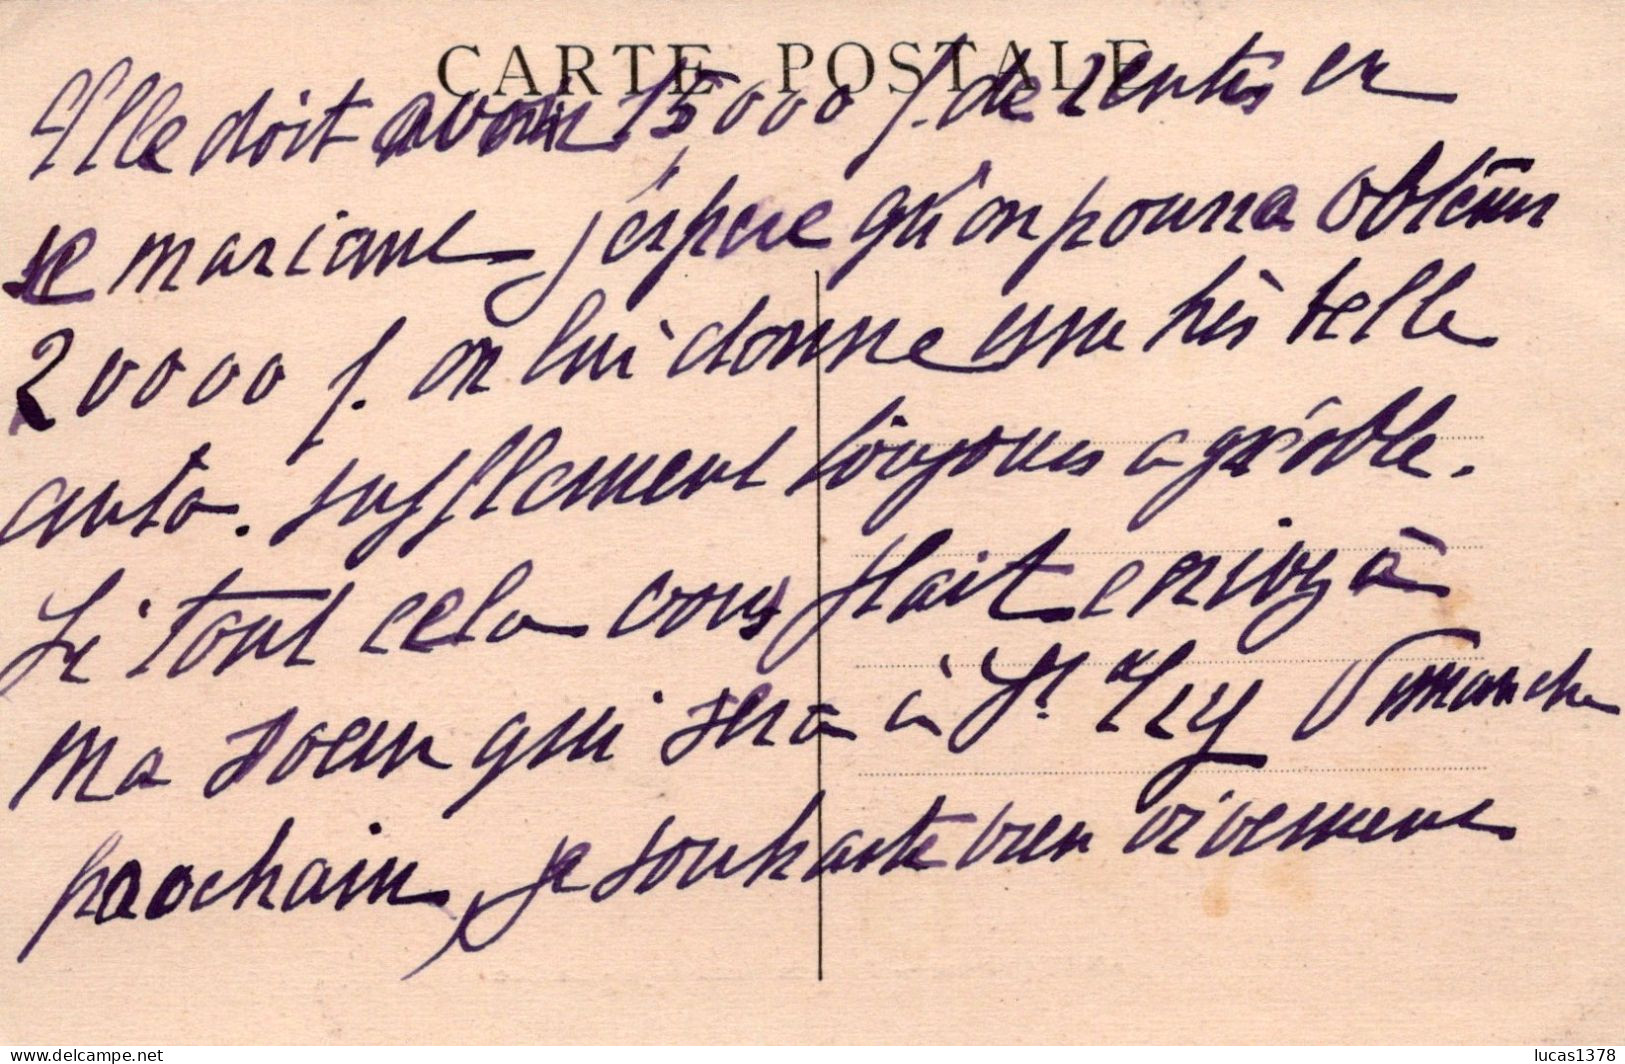 CARTE POSTALE
Elle doit avoir 15,000 f. de rentes en
se mariant j'espère qu'on pourra obtenir
20000 f. on lui donne une très belle
auto. supplement toujours agréable.
Si tout cela vous plait ecrivez à
ma soeur qui sera à St. Iry Dimanche
prochain, je souhaite bien vivement
lucas1378